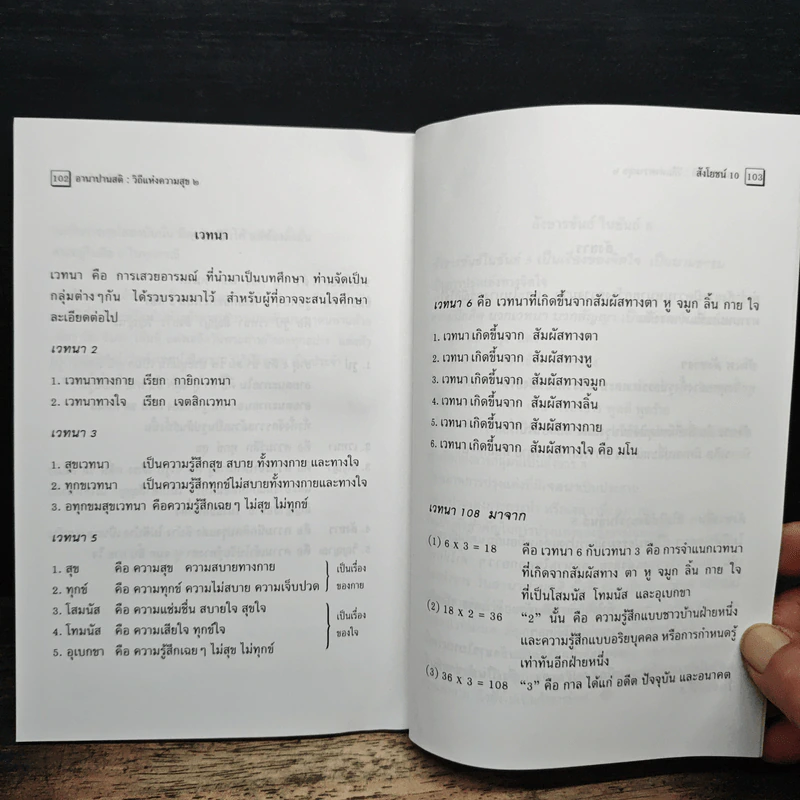 102 อานาปานสติ : วิถีแห่งความสุข ๒
เวทนา
เวทนา คือ การเสวยอารมณ์ ที่นำมาเป็นบทศึกษา ท่านจัดเป็น
กลุ่มต่างๆกัน ได้รวบรวมมาไว้ สำหรับผู้ที่อาจจะสนใจศึกษา
ละเอียดต่อไป
เวทนา 2
1. เวทนาทางกาย เรียก กายิกเวทนา
2. เวทนาทางใจ เรียก เจตสิกเวทนา
เวทนา 3
1. สุขเวทนา เป็นความรู้สึกสุข สบาย ทั้งทางกาย และทางใจ
2. ทุกขเวทนา เป็นความรู้สึกทุกข์ไม่สบายทั้งทางกายและทางใจ
3. อทุกขมสุขเวทนา คือความรู้สึกเฉยๆ ไม่สุข ไม่ทุกข์
เวทนา 5
1. สุข คือ ความสุข ความสบายทางกาย
2. ทุกข์ คือ ความทุกข์ ความไม่สบาย ความเจ็บปวด
เป็นเรื่อง
ของกาย
3. โสมนัส คือ ความแช่มชื่น สบายใจ สุขใจ
4. โทมนัส คือ ความเสียใจ ทุกข์ใจ
5. อุเบกขา คือ ความรู้สึกเฉยๆ ไม่สุข ไม่ทุกข์
เป็นเรื่อง
ของใจ
สังโยชน์ 10 103
เวทนา 6 คือ เวทนาที่เกิดขึ้นจากสัมผัสทางตา หู จมูก ลิ้น กาย ใจ
1. เวทนาเกิดขึ้นจาก สัมผัสทางตา
2. เวทนาเกิดขึ้นจาก สัมผัสทางหู
3. เวทนาเกิดขึ้นจาก สัมผัสทางจมูก
4. เวทนาเกิดขึ้นจาก สัมผัสทางลิ้น
5. เวทนาเกิดขึ้นจาก สัมผัสทางกาย
6. เวทนาเกิดขึ้นจาก สัมผัสทางใจ คือ มโน
เวทนา 108 มาจาก
(1) 6 x 3 = 18 คือ เวทนา 6 กับเวทนา 3 คือ การจำแนกเวทนา
ที่เกิดจากสัมผัสทาง ตา หู จมูก ลิ้น กาย ใจ
ที่เป็นโสมนัส โทมนัส และอุเบกขา
(2) 18 x 2 = 36 “2” นั้น คือ ความรู้สึกแบบชาวบ้านฝ่ายหนึ่ง
และความรู้สึกแบบอริยบุคคล หรือการกำหนดรู้
เท่าทันอีกฝ่ายหนึ่ง
(3) 36 x 3 = 108 “3” คือ กาล ได้แก่ อดีต ปัจจุบัน และอนาคต